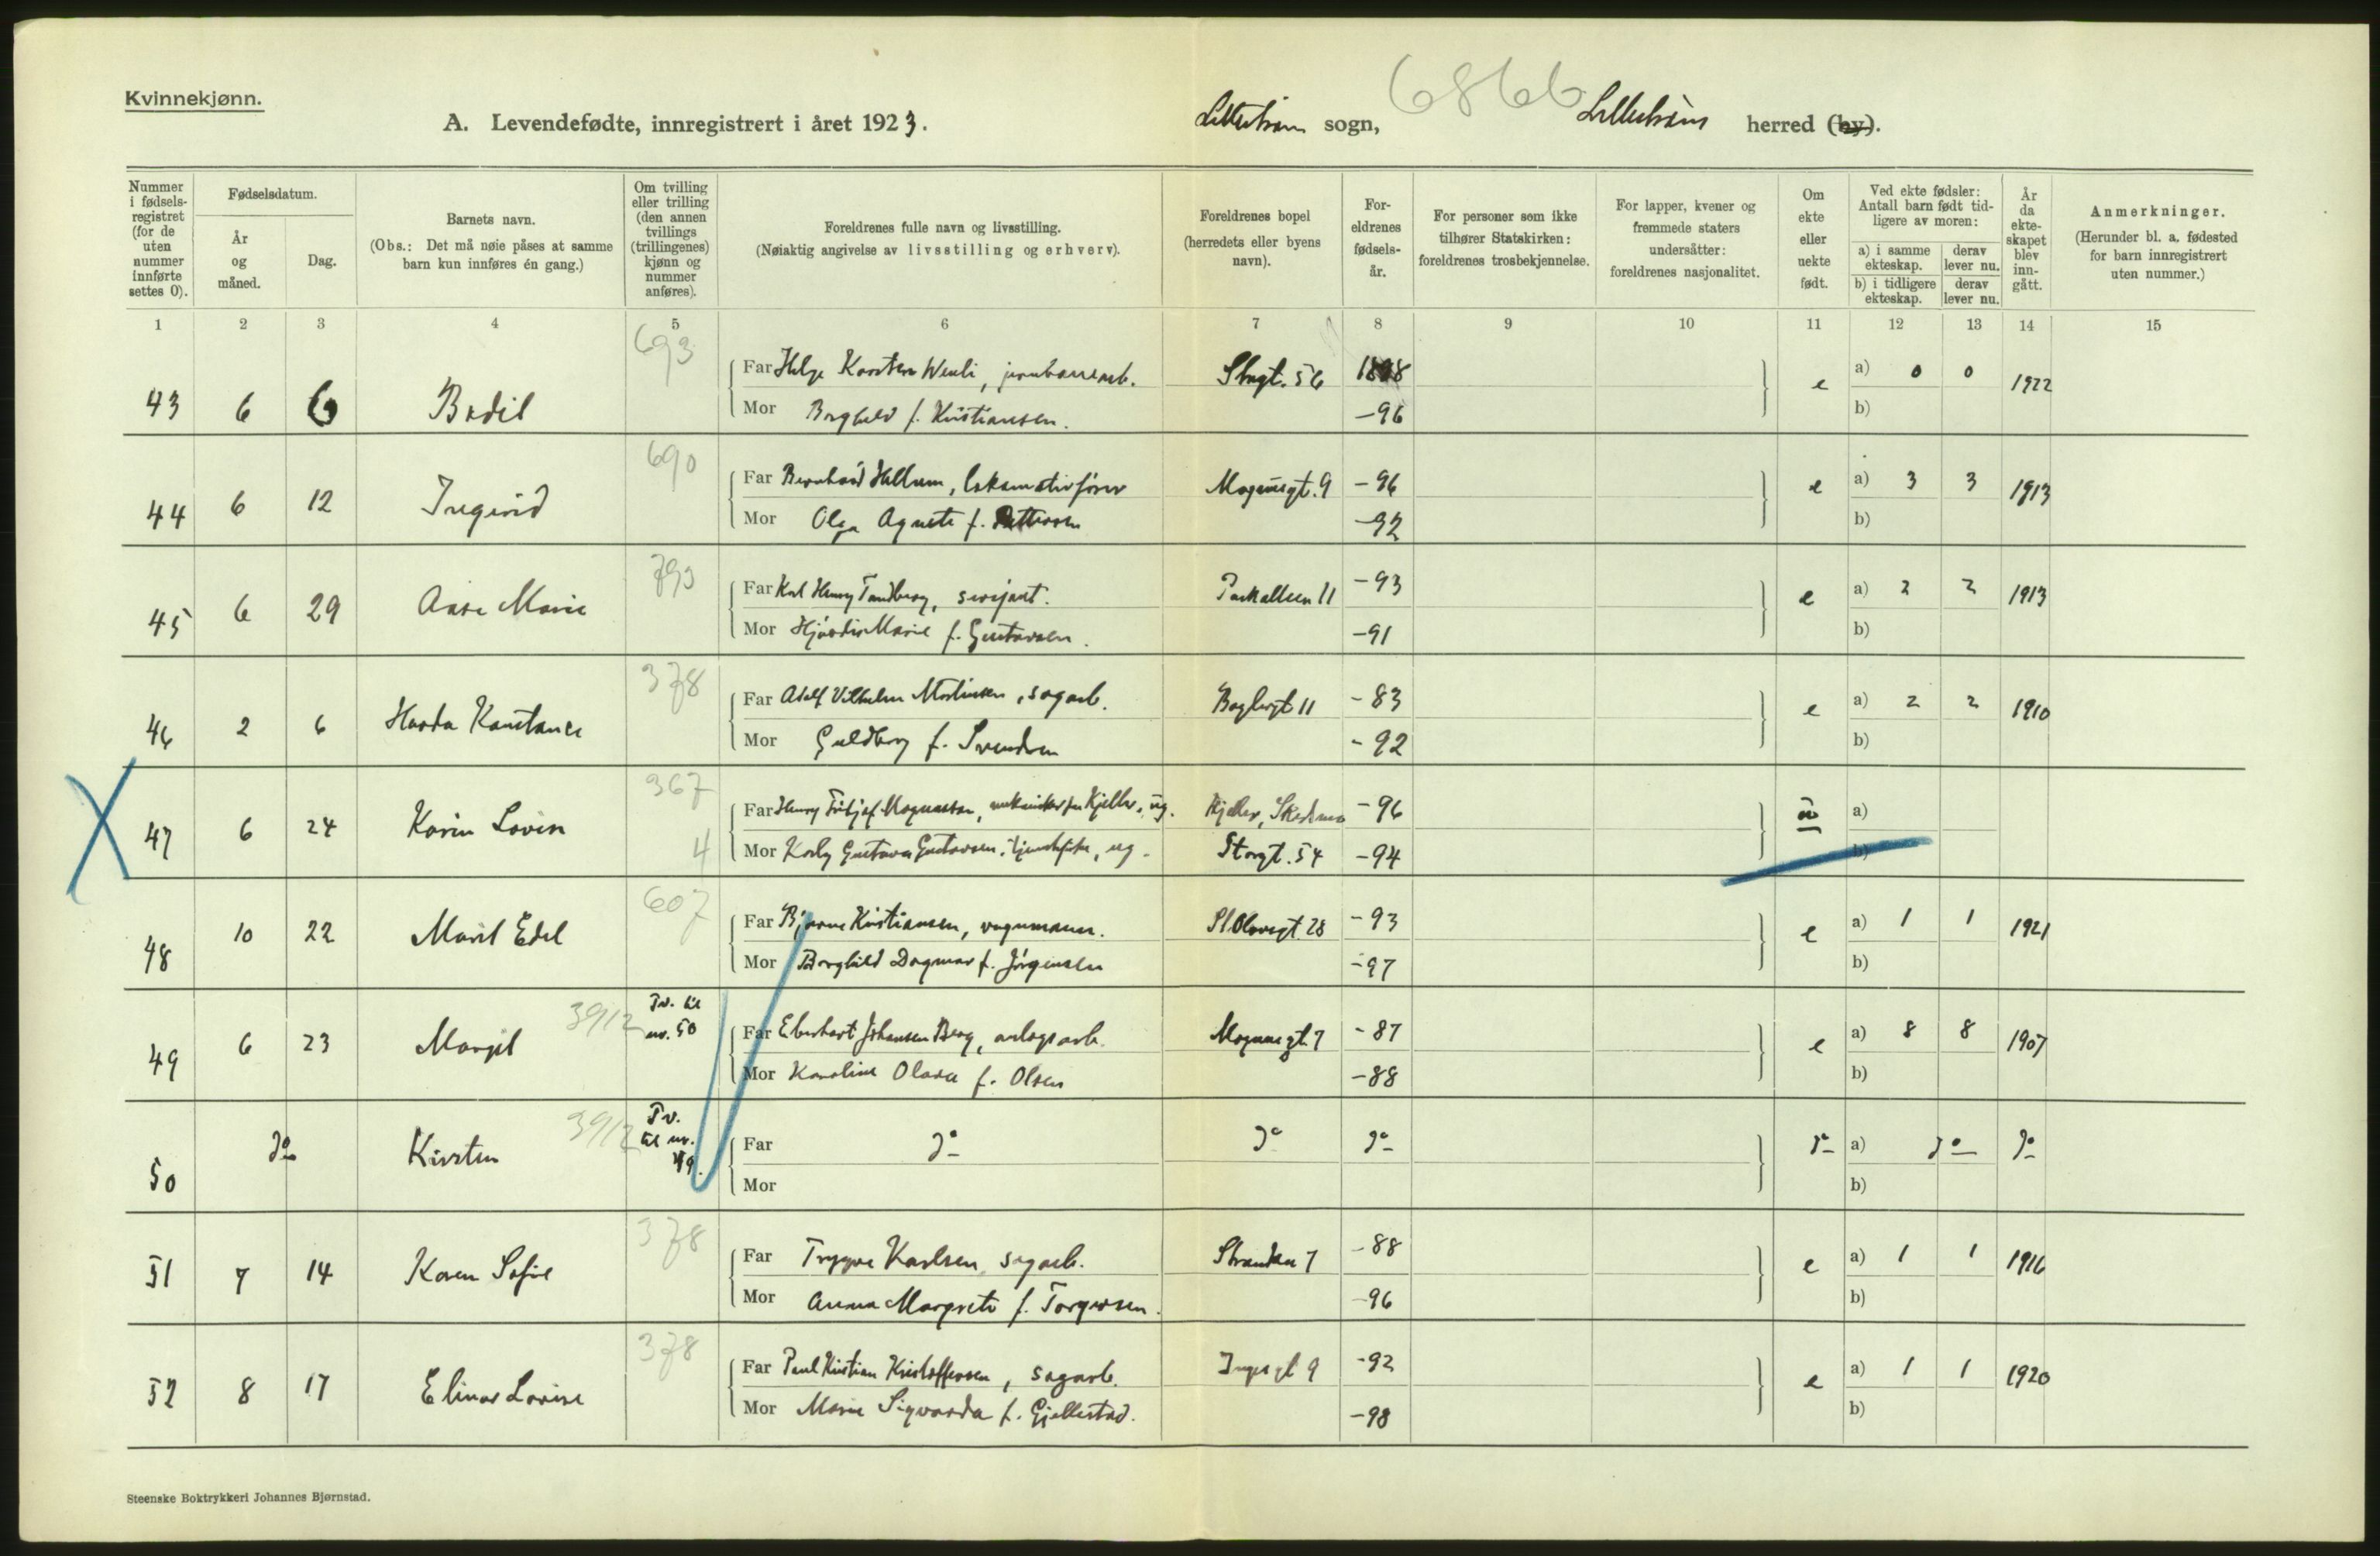 Kvinnekjønn.
6866
A. Levendefødte, innregistrert i året 1923.
Lillestrøm sogn, Lillestrøm herred (by).
Nummer i fødsels-registret (for de uten nummer innførte settes 0).
Fødselsdatum.
År og måned.
Dag.
Barnets navn.
(Obs.: Det må nøie påses at samme barn kun innføres én gang.)
Om tvilling eller trilling (den annen tvillings (trillingenes) kjønn og nummer anføres).
Foreldrenes fulle navn og livsstilling.
(Nøiaktig angivelse av livsstilling og erhverv).
Foreldrenes bopel (herredets eller byens navn).
For-eldrenes fødsels-år.
For personer som ikke tilhører Statskirken: foreldrenes trosbekjennelse.
For lapper, kvener og fremmede staters undersåtter: foreldrenes nasjonalitet.
Om ekte eller uekte født.
Ved ekte fødsler: Antall barn født tid-ligere av moren:
a) i samme ekteskap.
derav lever nu.
b) i tidligere ekteskap.
derav lever nu.
År da ekte-skapet blev inn-gått.
Anmerkninger.
(Herunder bl. a. fødested for barn innregistrert uten nummer.)
1 2 3 4 5 6 7 8 9 10 11 12 13 14 15
693
43 6 6 Bodil Far Helge Karsten Wenli, jernbanearb. Storgt. 56 1898 e a) 0 0 1922
Mor Borghild f. Kristiansen. -96 b)
690
44 6 12 Ingerid Far Bernhard Hellum, lokomotivfører Magnusgt. 9 -96 e a) 3 3 1913
Mor Olga Agnete f. Pettersen -92 b)
793
45 6 29 Aase Marie Far Karl Henry Tandberg, sersjant. Parkalleen 11 -93 e a) 2 2 1913
Mor Hjørdis Marie f. Gustavsen. -91 b)
378
46 2 6 Harda Konstance Far Adolf Vilhelm Martinsen, sagarb. Baglergt 11 -83 e a) 2 2 1910
Mor Guldborg f. Svendsen -92 b)
367
47 6 24 Karin Lovise Far Henry Fritjof Magnussen, mekaniker fra Kjeller, ug. Kjeller, Skedsmo -96 u a)
4 Mor Karly Gustava Gustavsen, tjenestepike, ug. Storgt. 54 -94 b)
607
48 10 22 Marit Edel Far Bjarne Kristiansen, vognmann. St Olavsgt. 28 -93 e a) 1 1 1921
Mor Borghild Dagmar f. Jørgensen -97 b)
3912 Tv. til nr. 50
49 6 23 Margit Far Eberhart Johansen Berg, anlegsarb. Magnusgt. 7 -87 e a) 8 8 1907
Mor Karoline Olava f. Olsen -88 b)
3912 Tv. til nr. 49.
50 do Kirsten Far do do do do a) do do
Mor b)
378
51 7 14 Karen Sofie Far Trygve Karlsen, sagarb. Stranden 7 -88 e a) 1 1 1916
Mor Anna Margrete f. Torgersen. -96 b)
378
52 8 17 Elinor Lovise Far Paul Kristian Kristoffersen, sagarb. Ingesgt 9 -92 e a) 1 1 1920
Mor Marie Sigvarda f. Gjellestad. -98 b)
Steenske Boktrykkeri Johannes Bjørnstad.